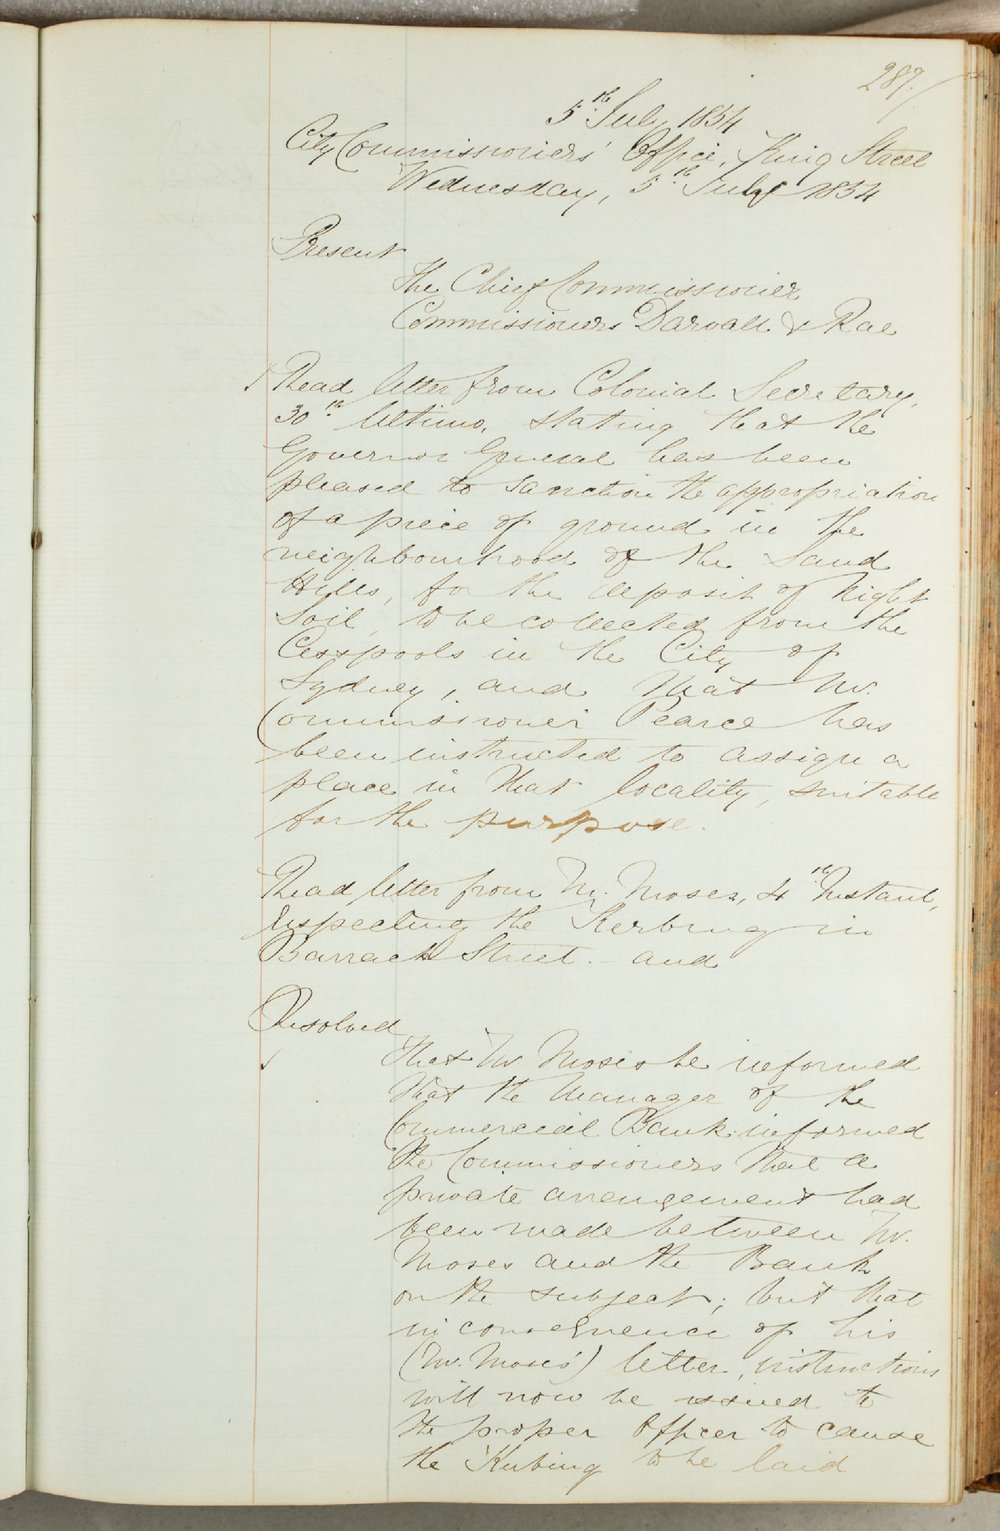 287.
5th July 1854
City Commissioners' Office, King Street
Wednesday, 5th July 1854
Present
The Chief Commissioner
Commissioners Darvall & Rae
Read letter from Colonial Secretary,
30th Ultimo, stating that the
Governor General has been
pleased to sanction the appropriation
of a piece of ground in the
neighbourhood of the Sand
Hills, for the deposit of Night
Soil, to be collected from the
Cesspools in the City of
Sydney, and that Mr.
Commissioner Pearce has
been instructed to assign a
place in that locality, suitable
for the purpose.
Read letter from Mr. Moses, 4th Instant,
respecting the Kerbing in
Barrack Street. - and
Resolved
That Mr Moses be informed
that the Manager of the
Commercial Bank informed
the Commissioners that a
private arrangement had
been made between Mr.
Moses and the Bank
on the subject; but that
in consequence of his
(Mr. Moses') letter, instructions
will now be issued to
the proper Officer to cause
the Kerbing to be laid